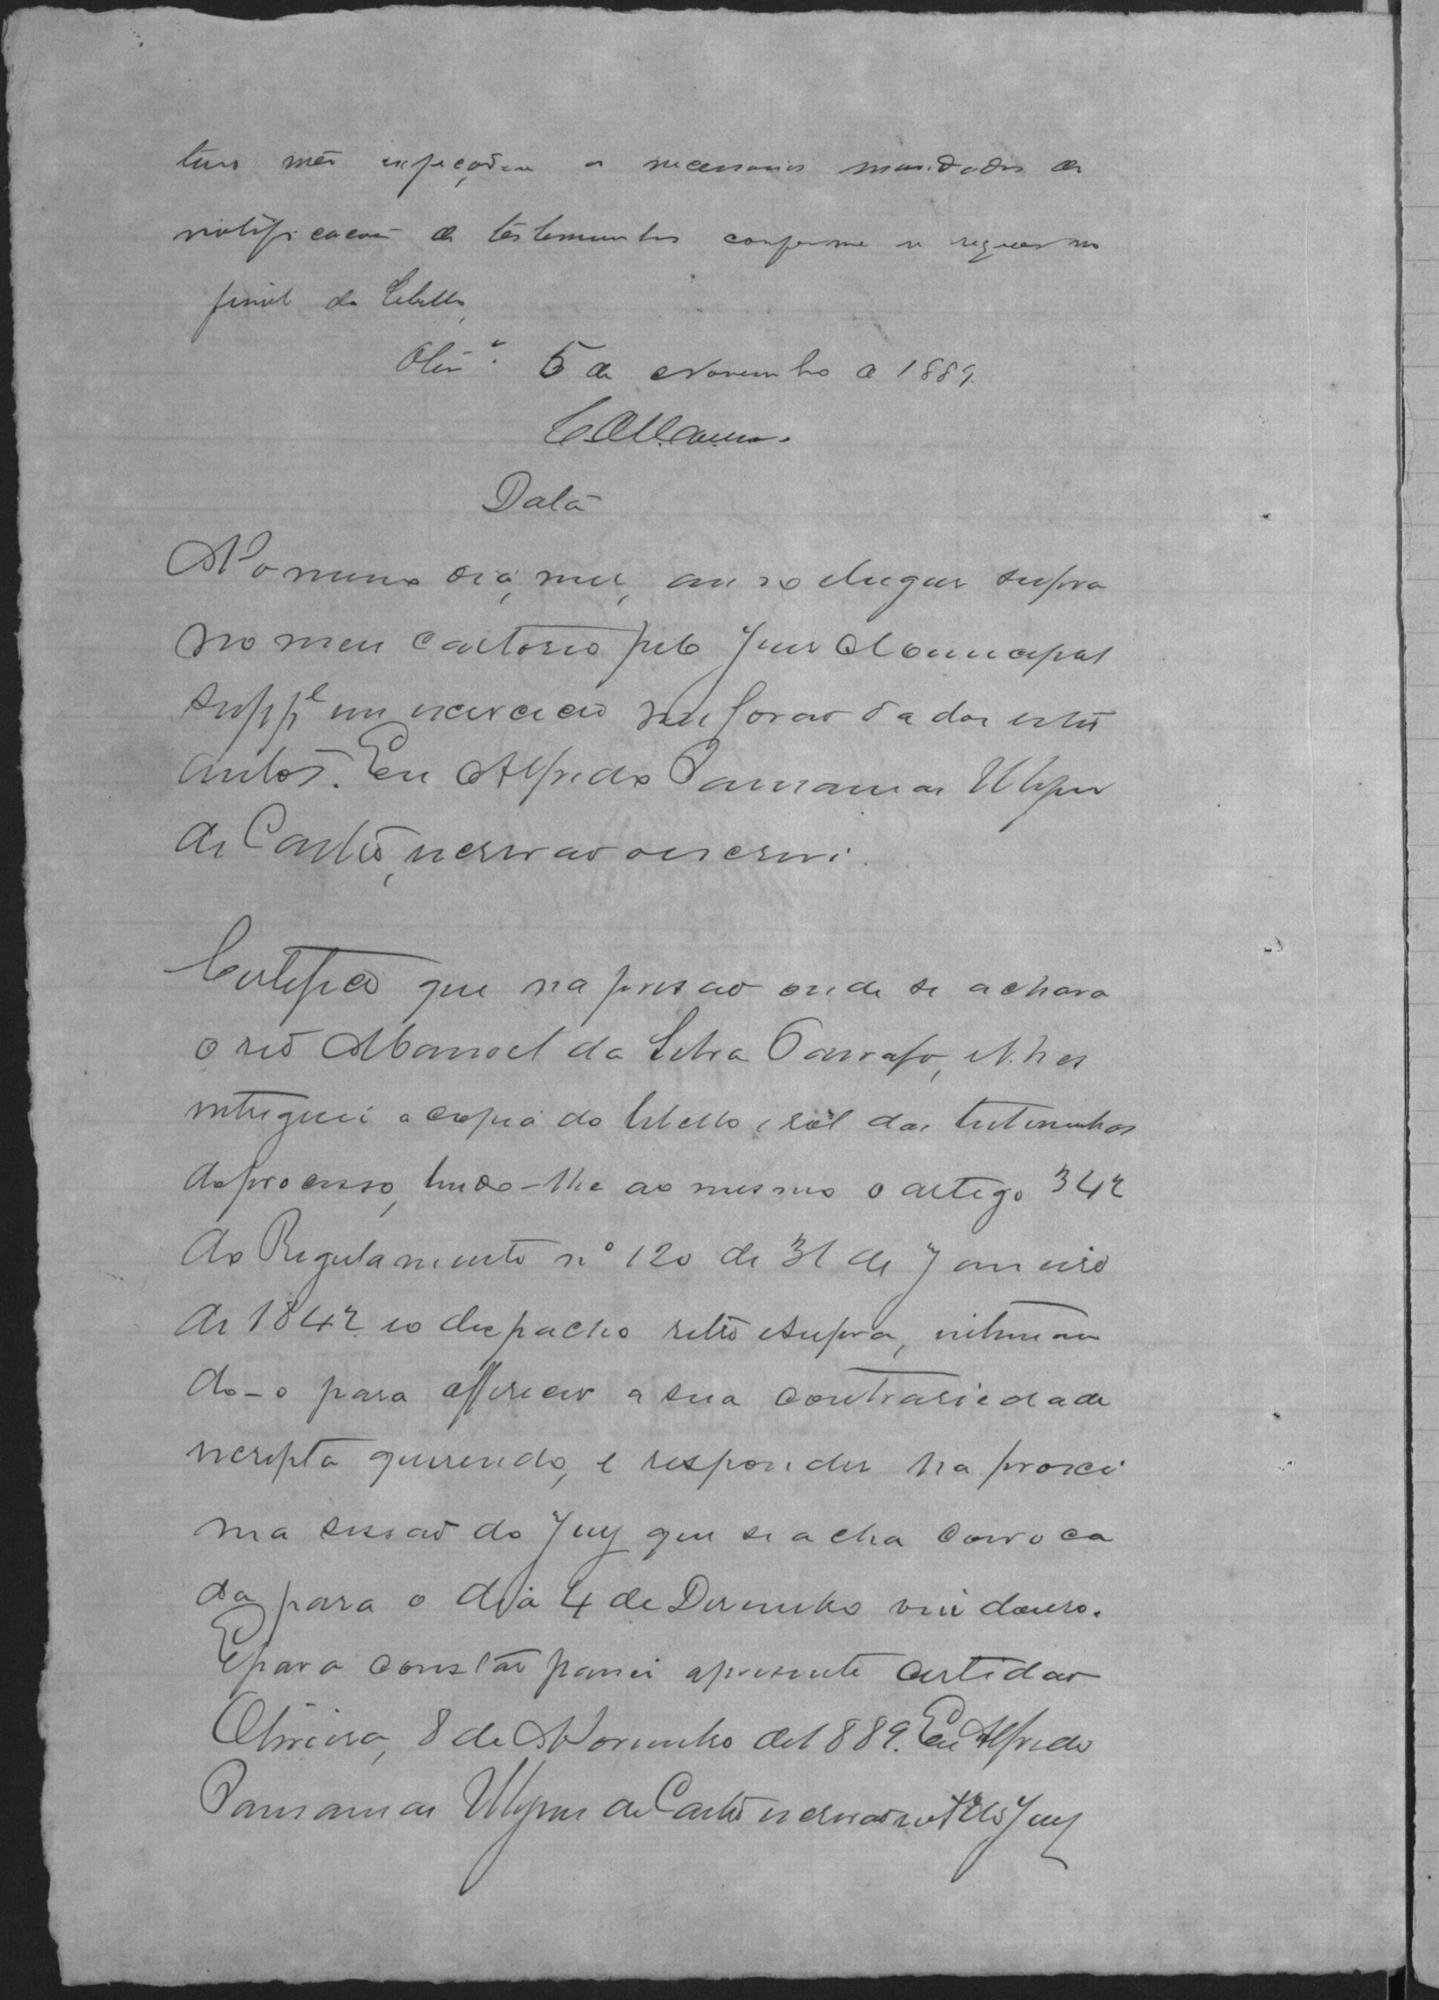 mês expeção-se os necessarios mandados de
notificação de testemunhas conforme se requer no
final do libello.
Olivª. 5 de Novembro de 1889.
Data
No mesmo dia, mez, anno e lugar supra
no meu cartorio pelo Juiz Municipal
suppl.e em exercicio me forão dados estes
autos. Eu Alfredo de
de Castro, escrivão o escrevi.
Certifico que na prisão onde se achava
o réo Manoel da Silva, e lhes
entreguei a copia do libello e rol das testemunhas
do processo, lendo-lhe ao mesmo o artigo 342
do Regulamento nº 120 de 31 de Janeiro
de 1842 e o despacho retro e supra, intiman
do-o para offerecer a sua contrariedade
escripta querendo, e responder na proxi
ma sessão do Jury que se acha convoca
da para o dia 4 de Dezembro vindouro.
E para constar passei a presente certidão
Oliveira, 8 de Novembro de 1889. Eu Alfredo
de Castro escrivão do Jury